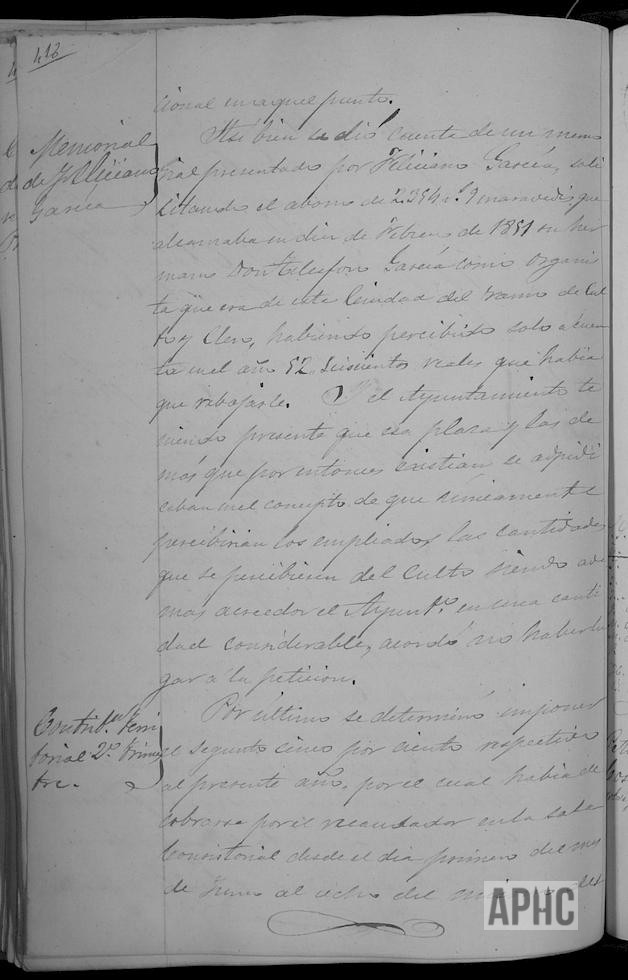 412
cional en aquel punto.
Memorial
de Feliciano
Garcia
Asi bien se dió cuenta de un memo
rial presentado por Feliciano Garcia, soli
citando el abono de 2.354 r.s 9 maravedis que
alcanzaba en dia de Febrero de 1851 su her
mano Don Telesforo Garcia como organis
ta que era de esta Ciudad del ramo de Cul
to y Clero, habiendo percibido solo a cuen
ta en el año 52 seiscientos reales que habia
que rebajarle. Y el Ayuntamiento te
niendo presente que esa plaza y las de
más que por entonces existian se adjudi
caban en el concepto de que únicamente
percibirian los empleados las cantidades
que se percibiesen del Culto siendo ade
mas acreedor el Ayunt.o en una canti
dad considerable, acordó no haber lu
gar á la peticion.
Contrib.on terri
torial 2.o trimes
tre.
Por último se determinó imponer
el segundo cinco por ciento respectivo
al presente año, por el cual habia de
cobrarse por el recaudador en la sala
Consistorial desde el dia primero del mes
de Junio al ocho del
APHC